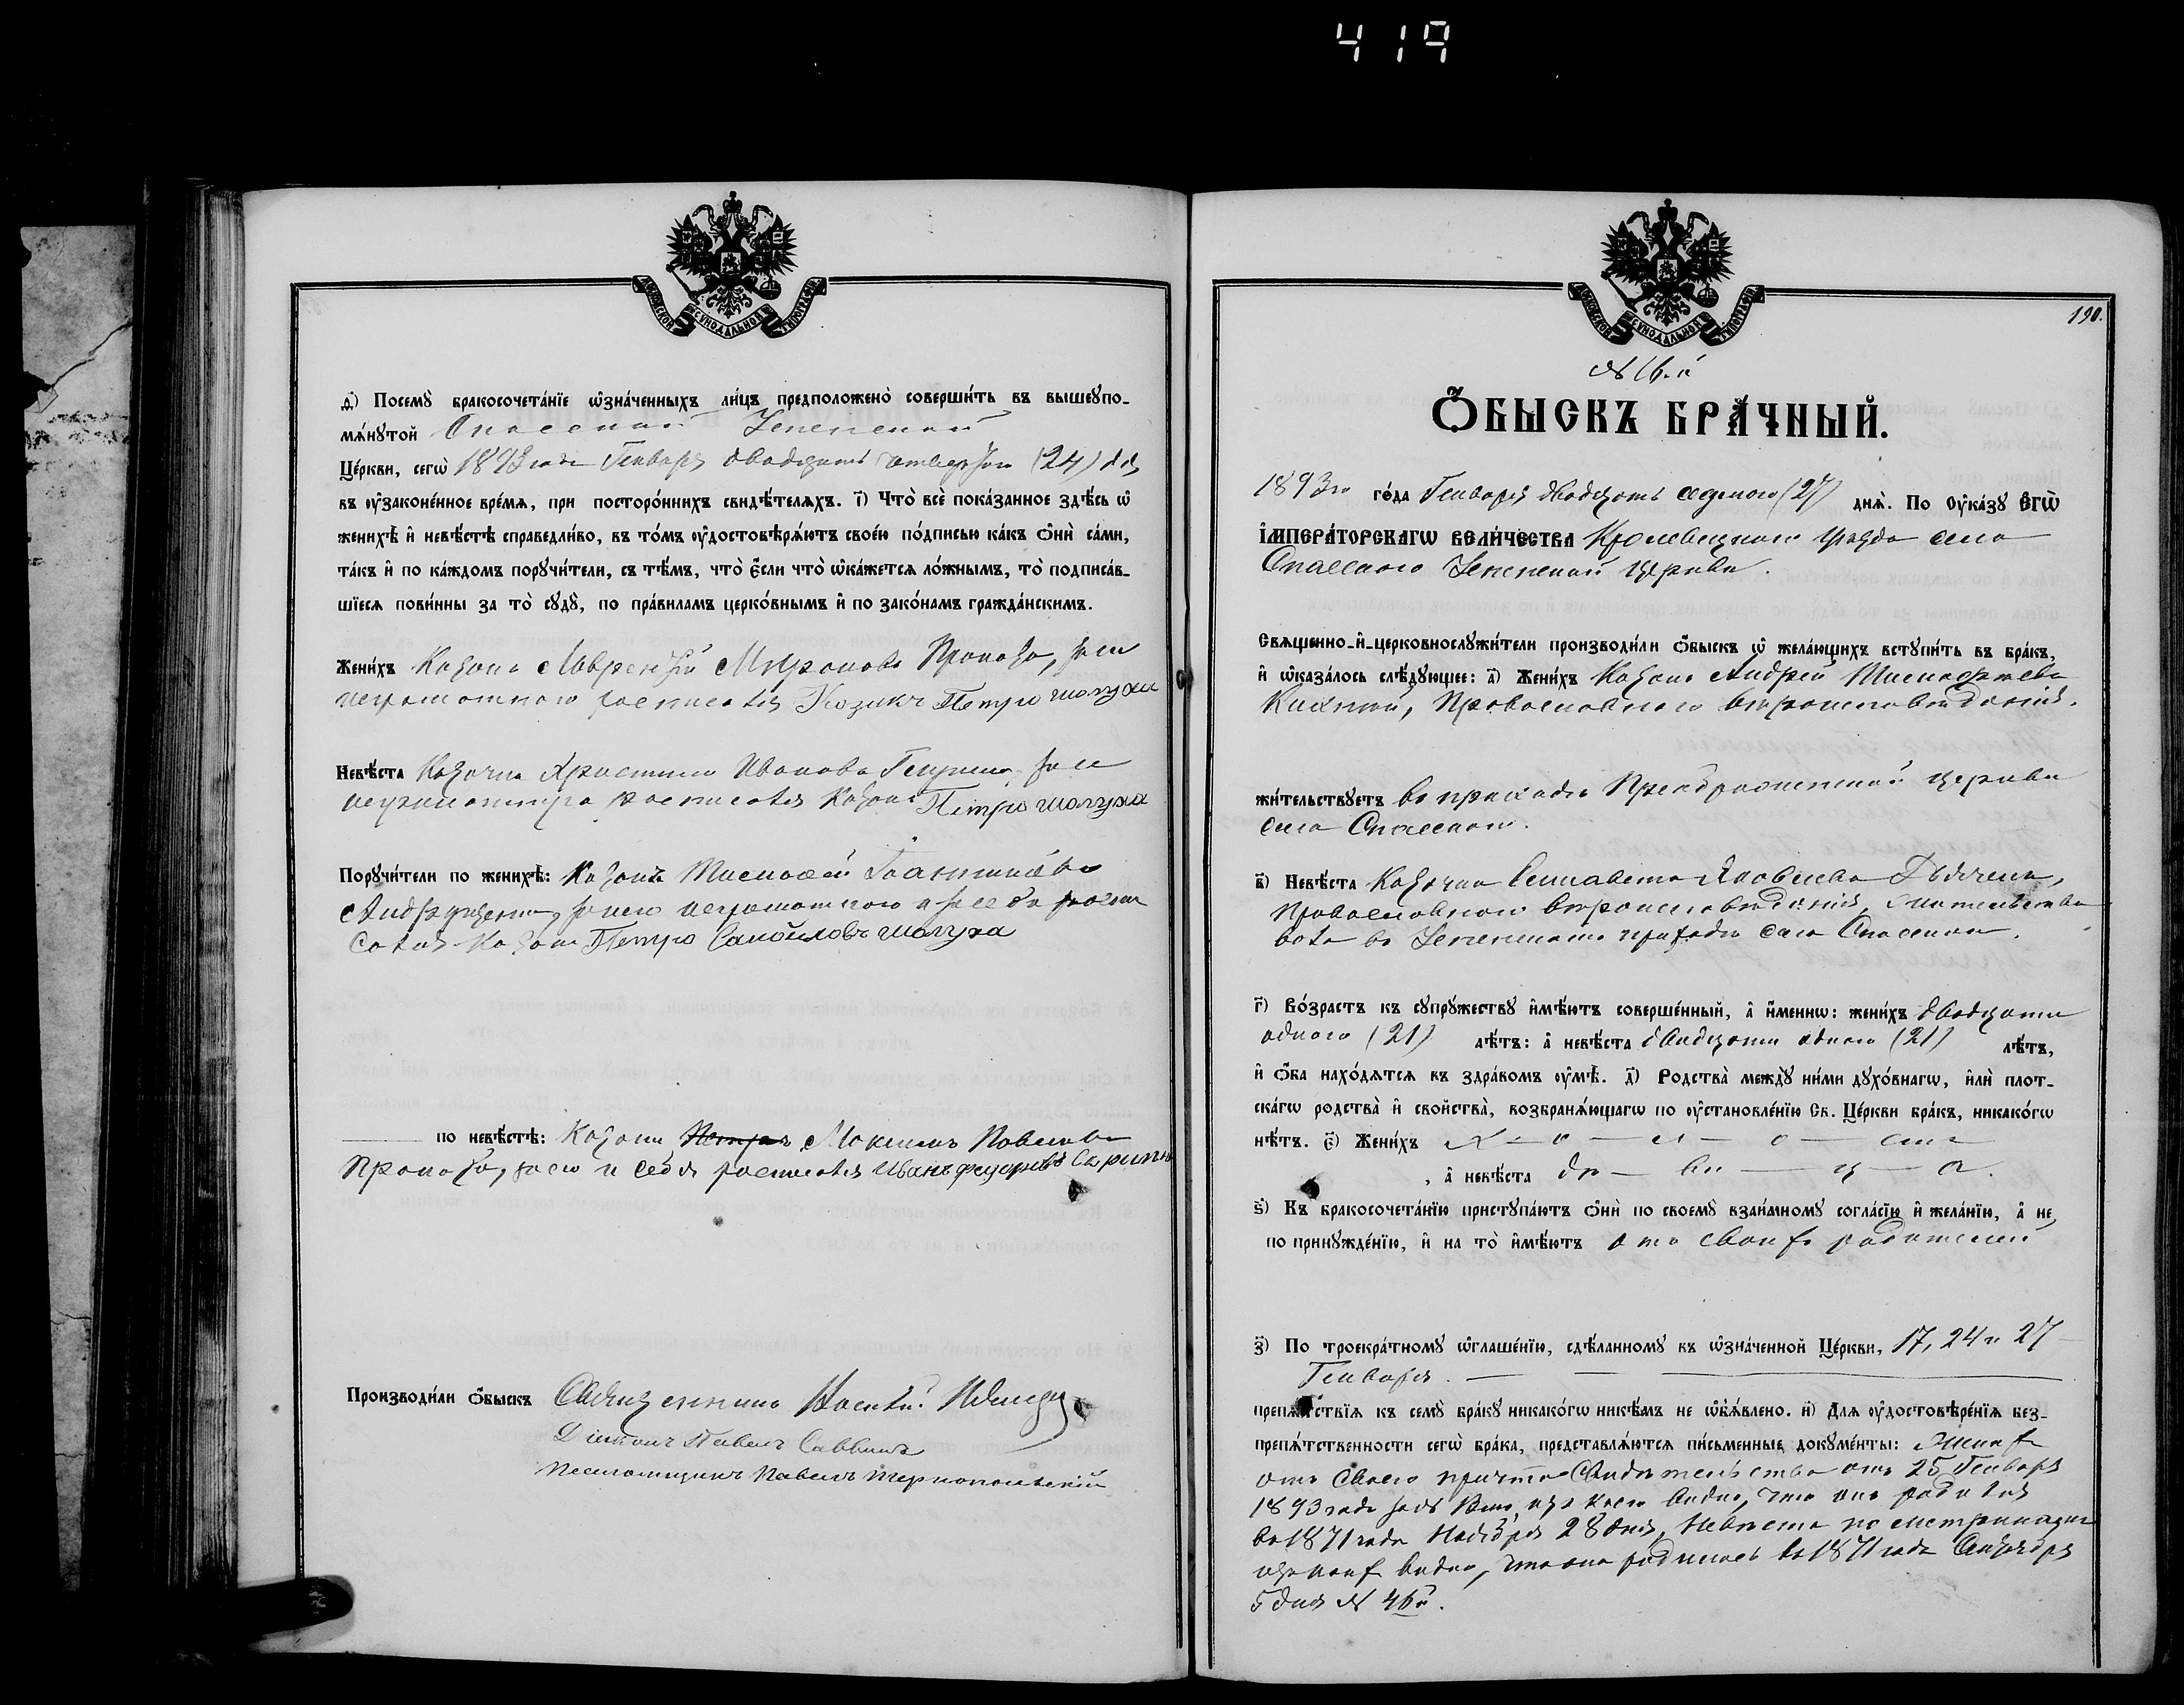 419
МОСКОВСКОЙ СѴНОДАЛЬНОЙ ТИПОГРАФІИ
ѳ҃) Посемꙋ̀ бракосочета́нїе ѡ҆зна́ченныхъ ли́цъ предположено̀ соверши́ть въ вышеꙋпо-
мѧ́нꙋтой Спасской Успенской
Це́ркви, сегѡ̀ 1893 года Генваря двадцать четвертаго (24) дня
въ ᲂу҆законе́нное вре́мѧ, при посторо́ннихъ свидѣ́телѧхъ. і҃) Что̀ всѐ пока́занное здѣ́сь ѡ҆
женихѣ̀ и҆ невѣ́стѣ справедли́во, въ то́мъ ᲂу҆достовѣрѧ́ютъ свое́ю по́дписью ка́къ ѻ҆нѝ са́ми,
та́къ и҆ по ка́ждомъ порꙋчи́тели, съ тѣ́мъ, что̀ є҆́сли что̀ ѡ҆ка́жетсѧ ло́жнымъ, то̀ подписа́в-
шїесѧ пови́нны за то̀ сꙋдꙋ̀, по пра́виламъ церко́внымъ и҆ по зако́намъ гражда́нскимъ.
Жени́хъ Козакъ Лаврентій Мироновъ Прокоза, за
неграмотного росписался Козакъ Петро шолуха
Невѣ́ста Козачка Христина Иванова за
неграмотную росписался Козакъ Петро шолуха
Порꙋчи́тели по женихѣ̀: Козакъ Тимофей
Андрущенко, за него неграмотного и за себя роспи
сался Козакъ Петро Самойловъ шолуха
по невѣ́стѣ: Козакъ Петръ Максимъ Павловъ
Прокоза, за его и себя росписался Иванъ федоровъ
Производи́ли ѻ҆́быскъ Священникъ
Діаконъ Павелъ Саввинъ
Псаломщикъ Павелъ Тернопольскій
МОСКОВСКОЙ СѴНОДАЛЬНОЙ ТИПОГРАФІИ
190.
№ 16.й
Ѻ҆́БЫСКЪ БРА́ЧНЫЙ.
1893го го́да Генваря двадцать седмого (27) днѧ̀. По Оу҆ка́зꙋ Є҆ГѠ̀
І҆МПЕРА́ТОРСКАГѠ ВЕЛИ́ЧЕСТВА Кролевецкого уезда села
Спасского Успенской церкви.
Свѧщенно-и҆-церковнослꙋжи́тели производи́ли ѻ҆́быскъ ѡ҆ жела́ющихъ встꙋпи́ть въ бра́къ,
и҆ ѡ҆каза́лось слѣ́дꙋющее: а҃) Жени́хъ Козакъ Андрей Тимофеевъ
православного вероисповеданія.
жи́тельствꙋетъ въ приходе Преображенской церкви
села Спасского.
в҃) Невѣ́ста Козачка Елисавета Яковлева Дяченко,
православного вероисповеданія, жительство
въ Успенскомъ приходе села Спасского.
г҃) Во́зрастъ къ сꙋпрꙋ́жествꙋ и҆мѣ́ютъ соверше́нный, а҆ и҆́меннѡ: жени́хъ двадцати
одного (21) лѣ́тъ: а҆ невѣ́ста двадцати одного (21) лѣ́тъ,
и҆ ѻ҆́ба нахо́дѧтсѧ въ здра́вомъ ᲂу҆мѣ̀. д҃) Родства̀ междꙋ̀ ни́ми дꙋхо́внагѡ, и҆лѝ плот-
ска́гѡ родства̀ и҆ сво́йства̀, возбранѧ́ющагѡ по ᲂу҆становле́нїю Св. Це́ркви бра́къ, никако́гѡ
нѣ́тъ. є҃) Жени́хъ х — о — л — о — стъ
, а҆ невѣ́ста дѣ — ви — ц — а.
ѕ҃) Къ бракосочета́нїю пристꙋпа́ютъ ѻ҆нѝ по своемꙋ̀ взаи́мномꙋ согла́сїю и҆ жела́нїю, а҆ не
по принꙋжде́нїю, и҆ на то̀ и҆мѣ́ютъ отъ своихъ родителей
з҃) По троекра́тномꙋ ѡ҆глаше́нїю, сдѣ́ланномꙋ въ ѡ҆зна́ченной Це́ркви, 17, 24 и 27
Генваря.
препѧ́тствїѧ къ семꙋ̀ бра́кꙋ никако́гѡ никѣ́мъ не ѡ҆б̾ѧ́влено. и҃) Длѧ ᲂу҆достовѣре́нїѧ без-
препѧ́тственности сегѡ̀ бра́ка, представлѧ́ютсѧ пи́сьменные докꙋме́нты: Жених
отъ своего причта свидетельство отъ 25 Генваря
1893 года за № изъ коего видно, что онъ родился
въ 1871 года Ноября 28 дня, Невеста по метрикации
изъ коих видно, что она родилась въ 1871 года Октября
5 дня № 46й.